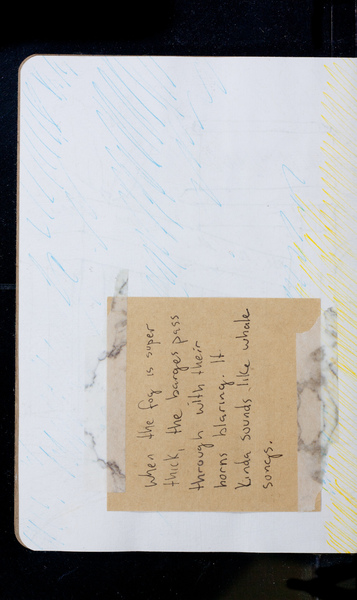 When the fog is super
thick, the barges pass
through with their
horns blaring. It
kinda sounds like whale
songs.